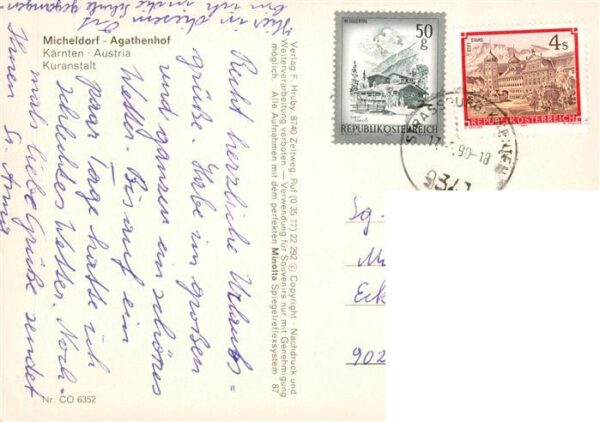 Micheldorf - Agathenhof
Kärnten · Austria
Kuranstalt
Hier in diesem Ort
bin ich in die Schule gegangen.
Recht herzliche Urlaubs=
grüße. Habe im großen
und ganzen ein schönes
Wetter. Bis auf ein
paar Tage hatte ich
schlechtes Wetter. Noch-
mals liebe Grüße sendet
Ihnen Sr. Anna
Nr. CO 6352
Verlag F. Hruby, 8740 Zeltweg, Ruf (0 35 77) 22 292 © Copyright · Nachdruck und
Weiterverarbeitung verboten. — Verwendung für Souvenirs nur mit Genehmigung
möglich. Alle Aufnahmen mit dem perfekten Minolta Spiegelreflexsystem · 87
50
g
REPUBLIK ÖSTERREICH
STIFT STAMS
4 S
REPUBLIK ÖSTERREICH
STRASSBURG
90-18
Sg.
Eck
902